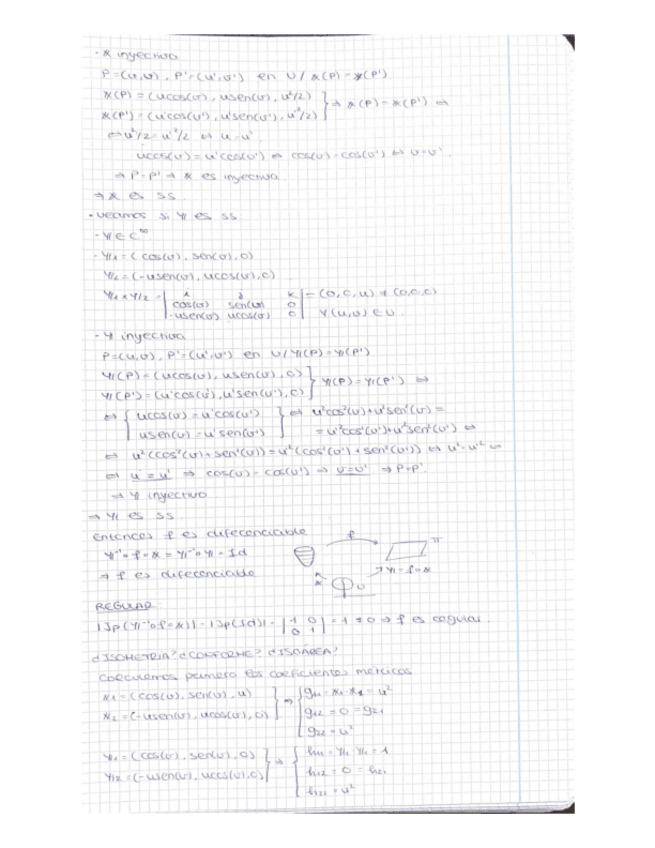 - 𝕩 inyectiva
P=(u,v), P'=(u',v') en U / 𝕩(P)=𝕩(P')
𝕩(P) = (ucos(v), usen(v), u²/2)
𝕩(P') = (u'cos(v'), u'sen(v'), u'²/2) } ⇒ 𝕩(P)=𝕩(P') ⇔
⇔ u²/2=u'²/2 ⇔ u=u'
ucos(v)=u'cos(v') ⇔ cos(v)=cos(v') ⇔ v=v'.
⇒ P=P' ⇒ 𝕩 es inyectiva
⇒ 𝕩 es SS
• Veamos si 𝕪 es SS
- 𝕪 ∈ C^∞
- 𝕪₁ = (cos(v), sen(v), 0)
𝕪₂ = (-usen(v), ucos(v), 0)
𝕪₁ x 𝕪₂ = | i j k | = (0,0,u) ≠ (0,0,0)
cos(v) sen(v) 0
-usen(v) ucos(v) 0 | ∀(u,v) ∈ U
- 𝕪 inyectiva
P=(u,v), P'=(u',v') en U / 𝕪(P)=𝕪(P')
𝕪(P) = (ucos(v), usen(v), 0)
𝕪(P') = (u'cos(v'), u'sen(v'), 0) } 𝕪(P)=𝕪(P') ⇔
⇔ { ucos(v) = u'cos(v') } ⇔ u²cos²(v)+u²sen²(v) =
usen(v) = u'sen(v') = u'²cos²(v')+u'²sen²(v') ⇔
⇔ u²(cos²(v)+sen²(v)) = u'²(cos²(v')+sen²(v')) ⇔ u²=u'² ⇔
⇔ u=u' ⇒ cos(v)=cos(v') ⇒ v=v' ⇒ P=P'
⇒ 𝕪 inyectiva
⇒ 𝕪 es SS
Entonces f es diferenciable
𝕪⁻¹∘f∘𝕩 = 𝕪⁻¹∘𝕪 = Id
⇒ f es diferenciable
f
π
𝕩
U
𝕪=f∘𝕩
REGULAR
|Jp(𝕪⁻¹∘f∘𝕩)| = |Jp(Id)| = | 1 0 | = 1 ≠ 0 ⇒ f es regular.
0 1
¿ISOMETRIA? ¿CONFORME? ¿ISOAREA?
Calculemos primero los coeficientes métricos
𝕩₁ = (cos(v), sen(v), u)
𝕩₂ = (-usen(v), ucos(v), 0) } ⇒ { g₁₁ = 𝕩₁·𝕩₁ = u²
g₁₂ = 0 = g₂₁
g₂₂ = u²
𝕪₁ = (cos(v), sen(v), 0)
𝕪₂ = (-usen(v), ucos(v), 0) } ⇒ { h₁₁ = 𝕪₁·𝕪₁ = 1
h₁₂ = 0 = h₂₁
h₂₂ = u²